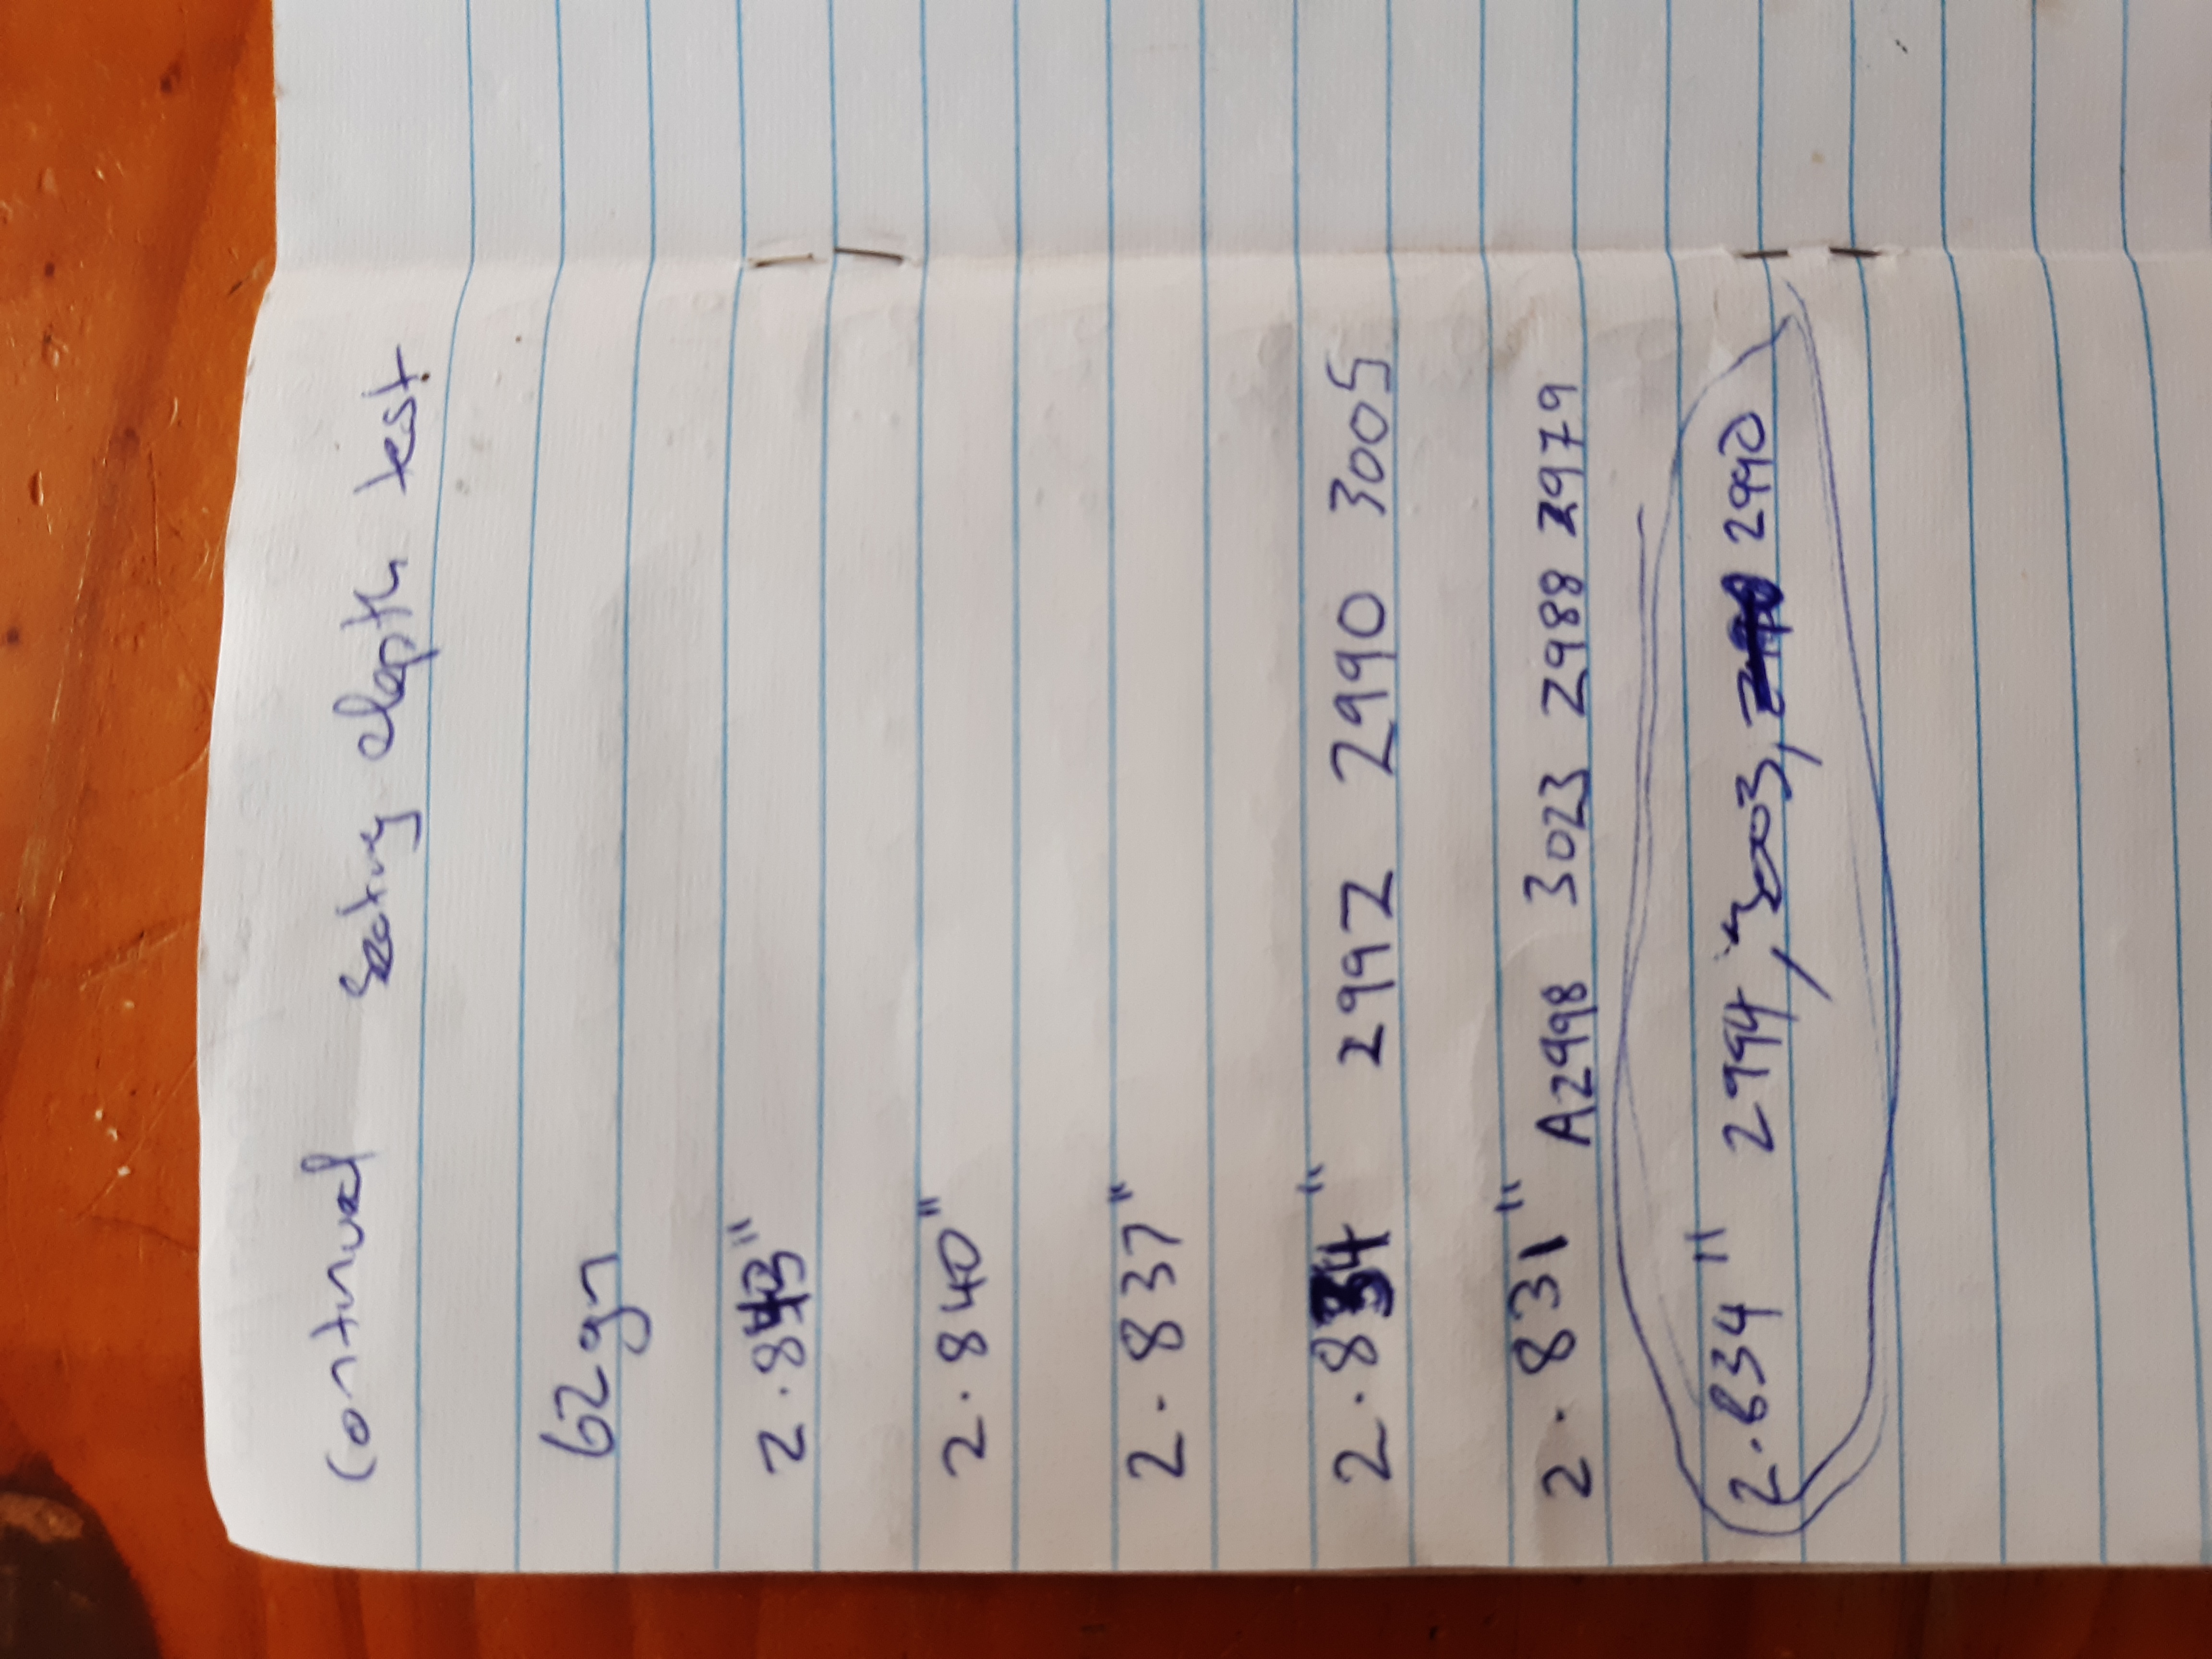 continued seating depth test
62gn
2.843"
2.840"
2.837"
2.834" 2992 2990 3005
2.831" A2998 3023 2988 2979
2.834" 2994, 3003, 2990